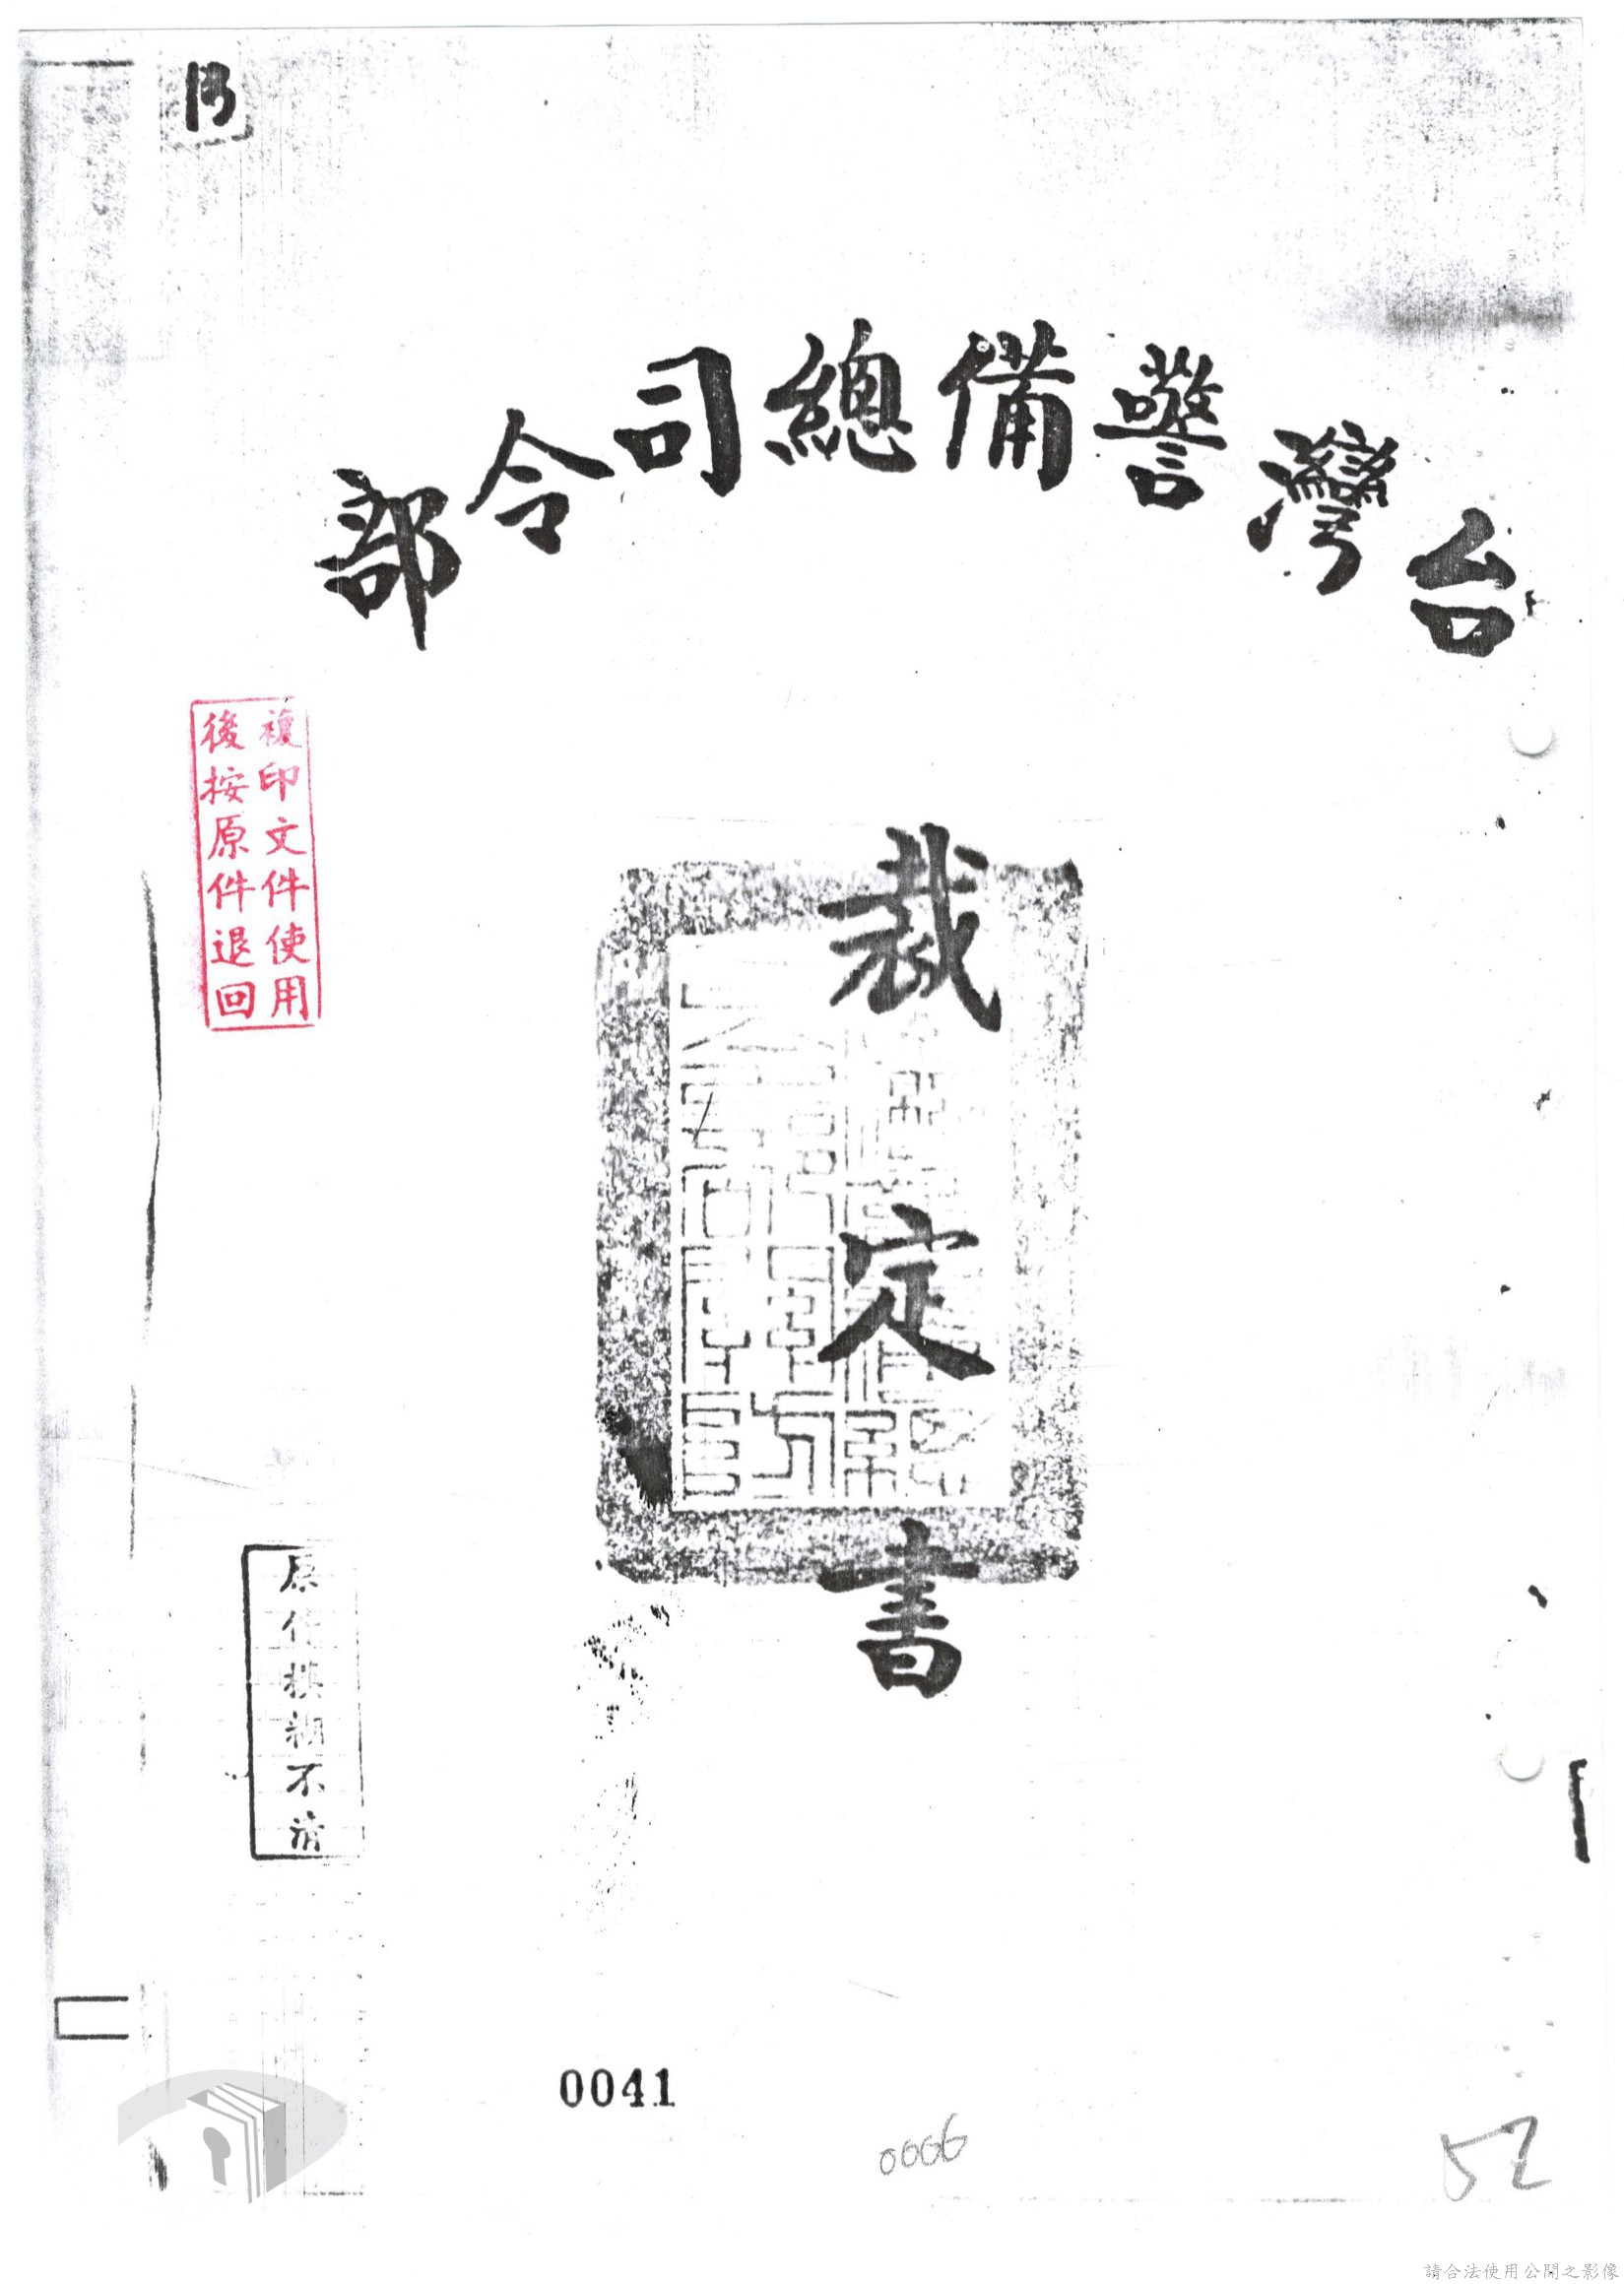 台灣警備總司令部
裁定書
複印文件使用
後按原件退回
原件模糊不清
0041
0006
52
請合法使用公開之影像